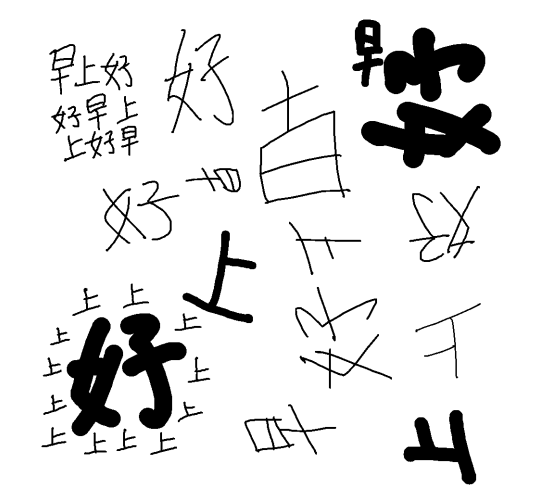 早上好
好早上
上好早
好
早
早
好
好
早
上
上
好
上 上
上
上
上
上
上
好
上
上
上 上 上
好
上
早
上